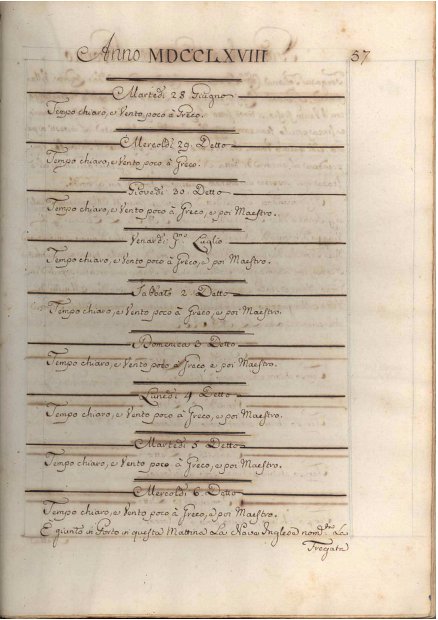 Anno MDCCLXVIII 37
Martedi 28 Giugno
Tempo chiaro, e Vento poco à Greco.
Mercoldi 29 Detto
Tempo chiaro, e Vento poco à Greco.
Giovedi 30 Detto
Tempo chiaro, e Vento poco à Greco, e poi Maestro.
Venardi P.mo Luglio
Tempo chiaro, e Vento poco à Greco, e poi Maestro.
Sabbato 2 Detto
Tempo chiaro, e Vento poco à Greco, e poi Maestro.
Domenica 3 Detto
Tempo chiaro, e Vento poco à Greco, e poi Maestro.
Lunedi 4 Detto
Tempo chiaro, e Vento poco à Greco, e poi Maestro.
Martedi 5 Detto
Tempo chiaro, e Vento poco à Greco, e poi Maestro.
Mercoldi 6 Detto
Tempo chiaro, e Vento poco à Greco, e poi Maestro.
E giunto in Porto in questa Mattina La Nave Inglese La
Fregata